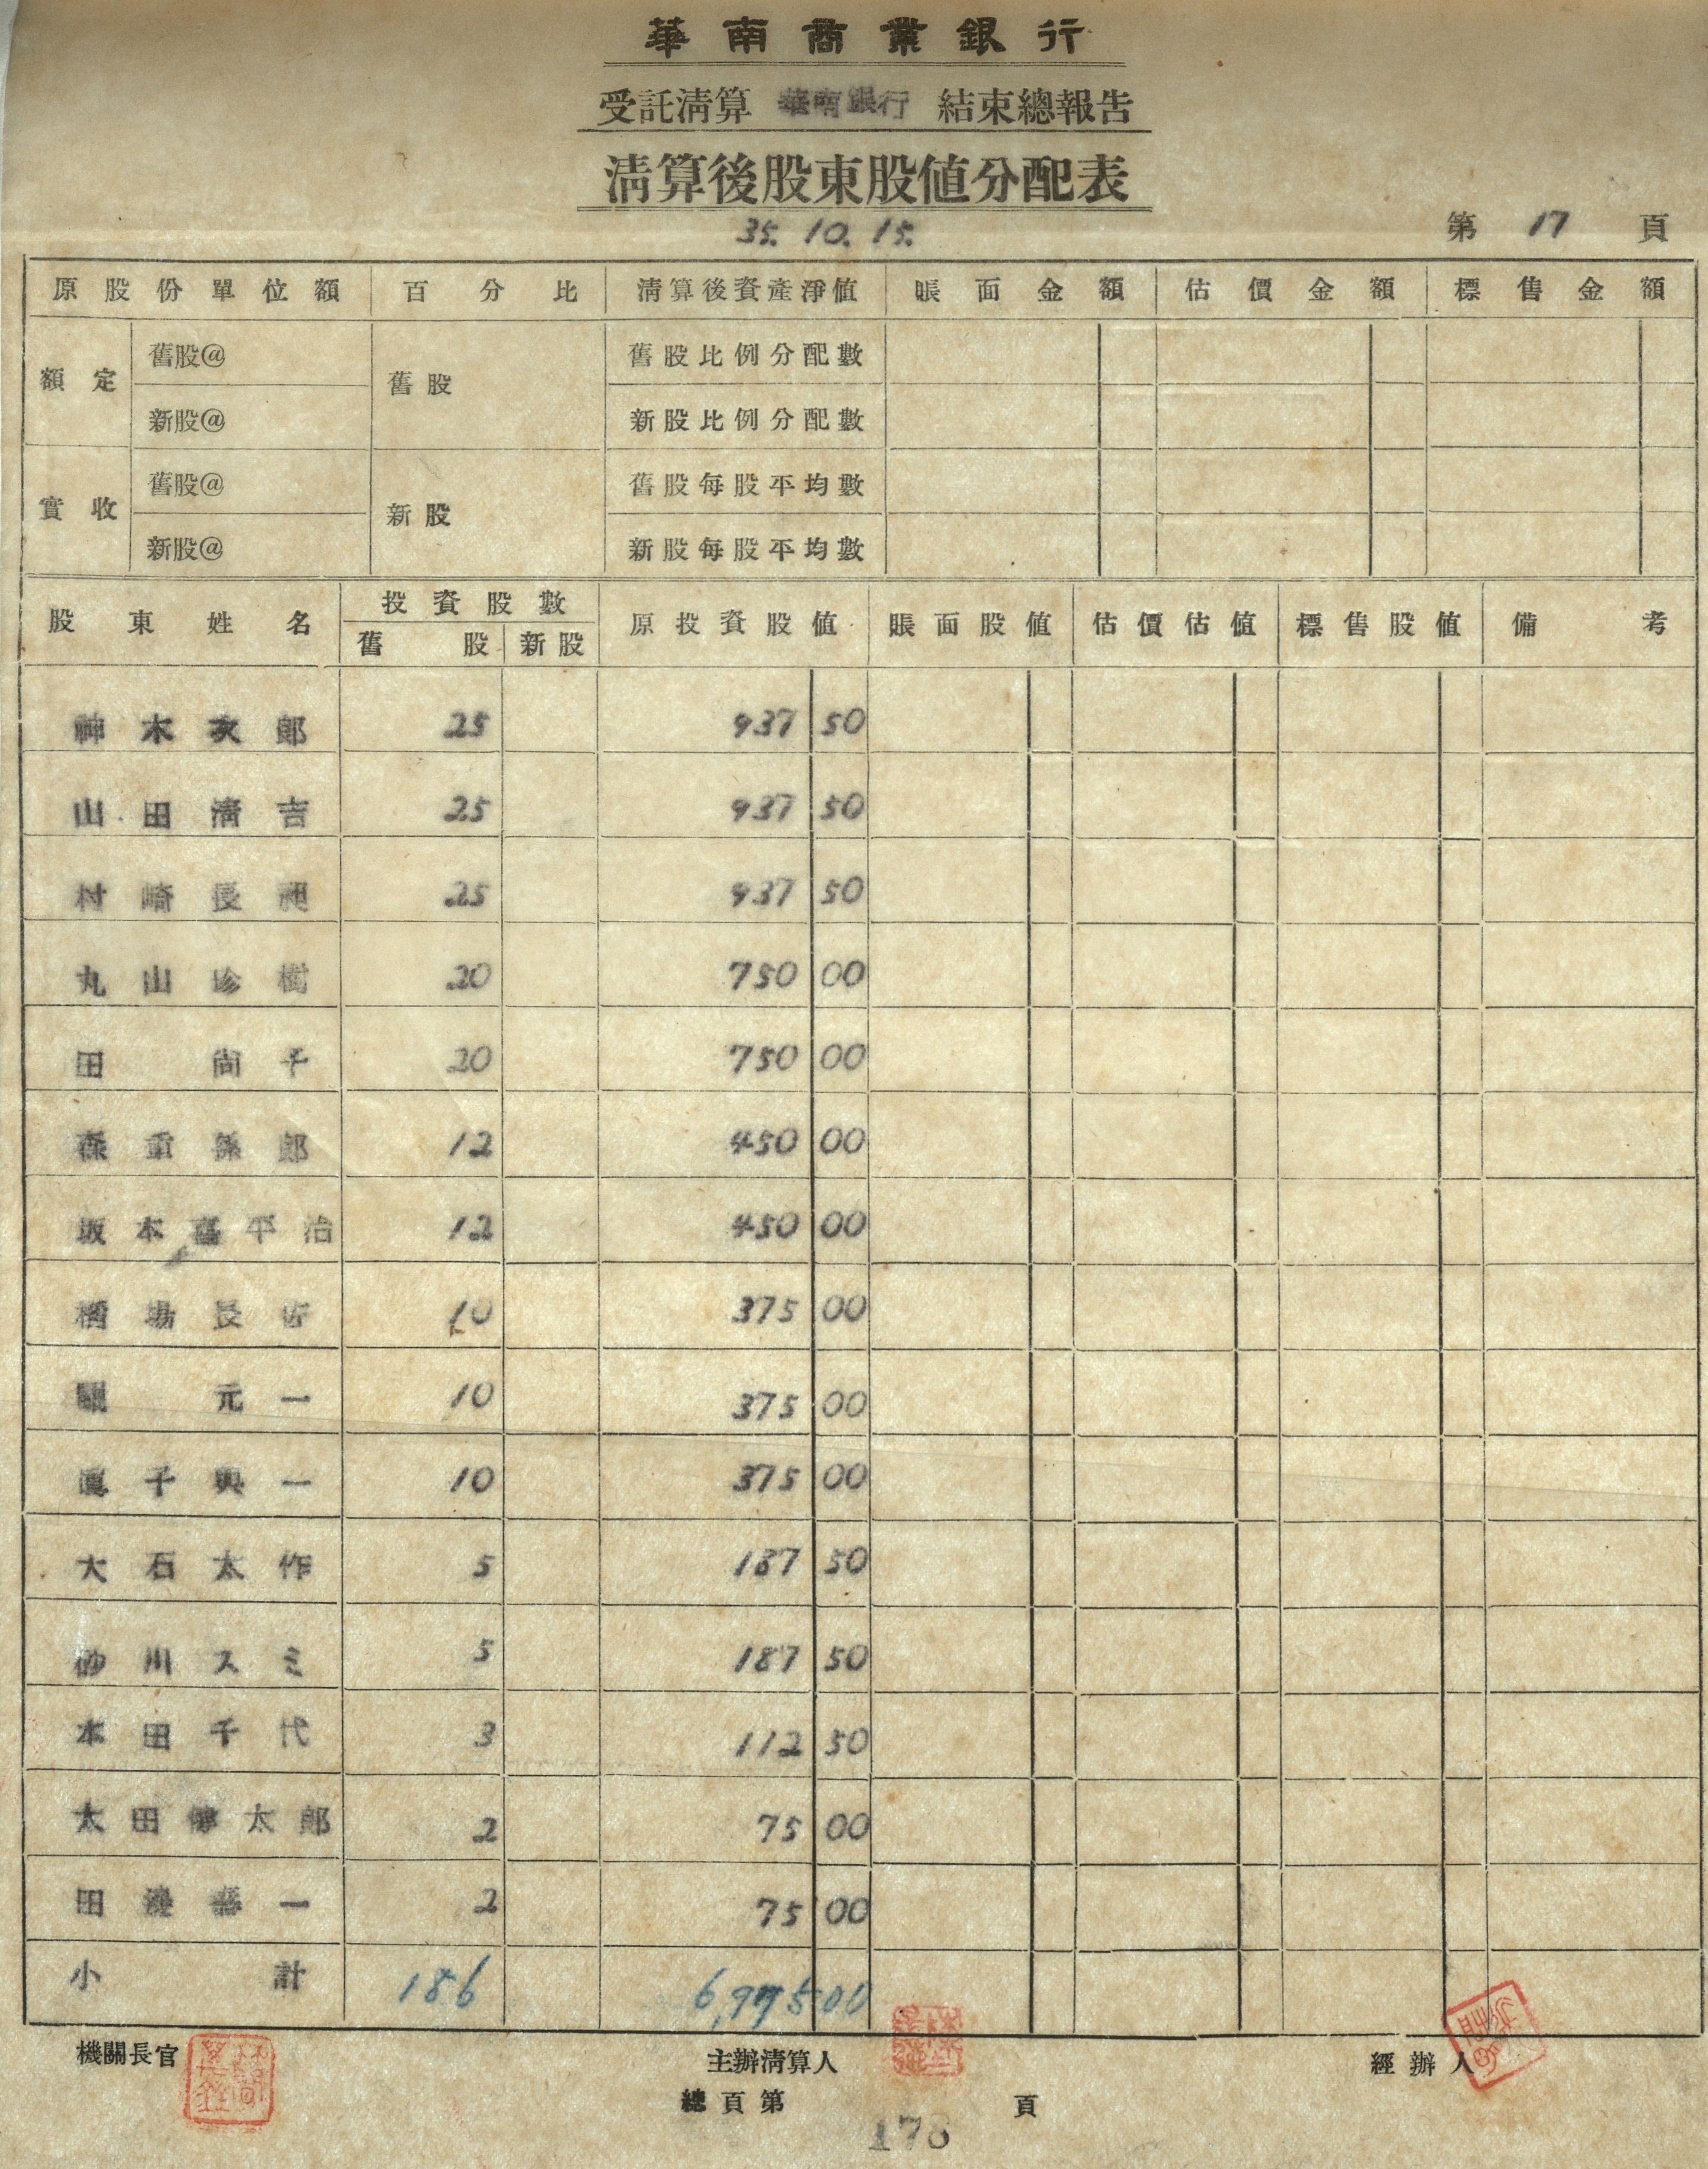 華南商業銀行
受託清算 華南銀行 結束總報告
清算後股東股值分配表
35. 10. 15.
第 17 頁
原股份單位額 百分比 清算後資產淨值 賬面金額 估價金額 標售金額
額定 舊股@ 舊股 舊股比例分配數
新股@ 新股比例分配數
實收 舊股@ 新股 舊股每股平均數
新股@ 新股每股平均數
股東姓名 投資股數 原投資股值 賬面股值 估價估值 標售股值 備考
舊股 新股
神木次郎 25 937 50
山田清吉 25 937 50
村崎長昶 25 937 50
丸山珍樹 20 750 00
田 尚子 20 750 00
重 郎 12 450 00
坂本嘉平治 12 450 00
場長 10 375 00
元一 10 375 00
子興一 10 375 00
大石太作 5 187 50
砂川スミ 5 187 50
本田千代 3 112 50
太田健太郎 2 75 00
田邊喜一 2 75 00
小計 186 6,975 00
機關長官 主辦清算人 經辦人
總頁第 頁
178